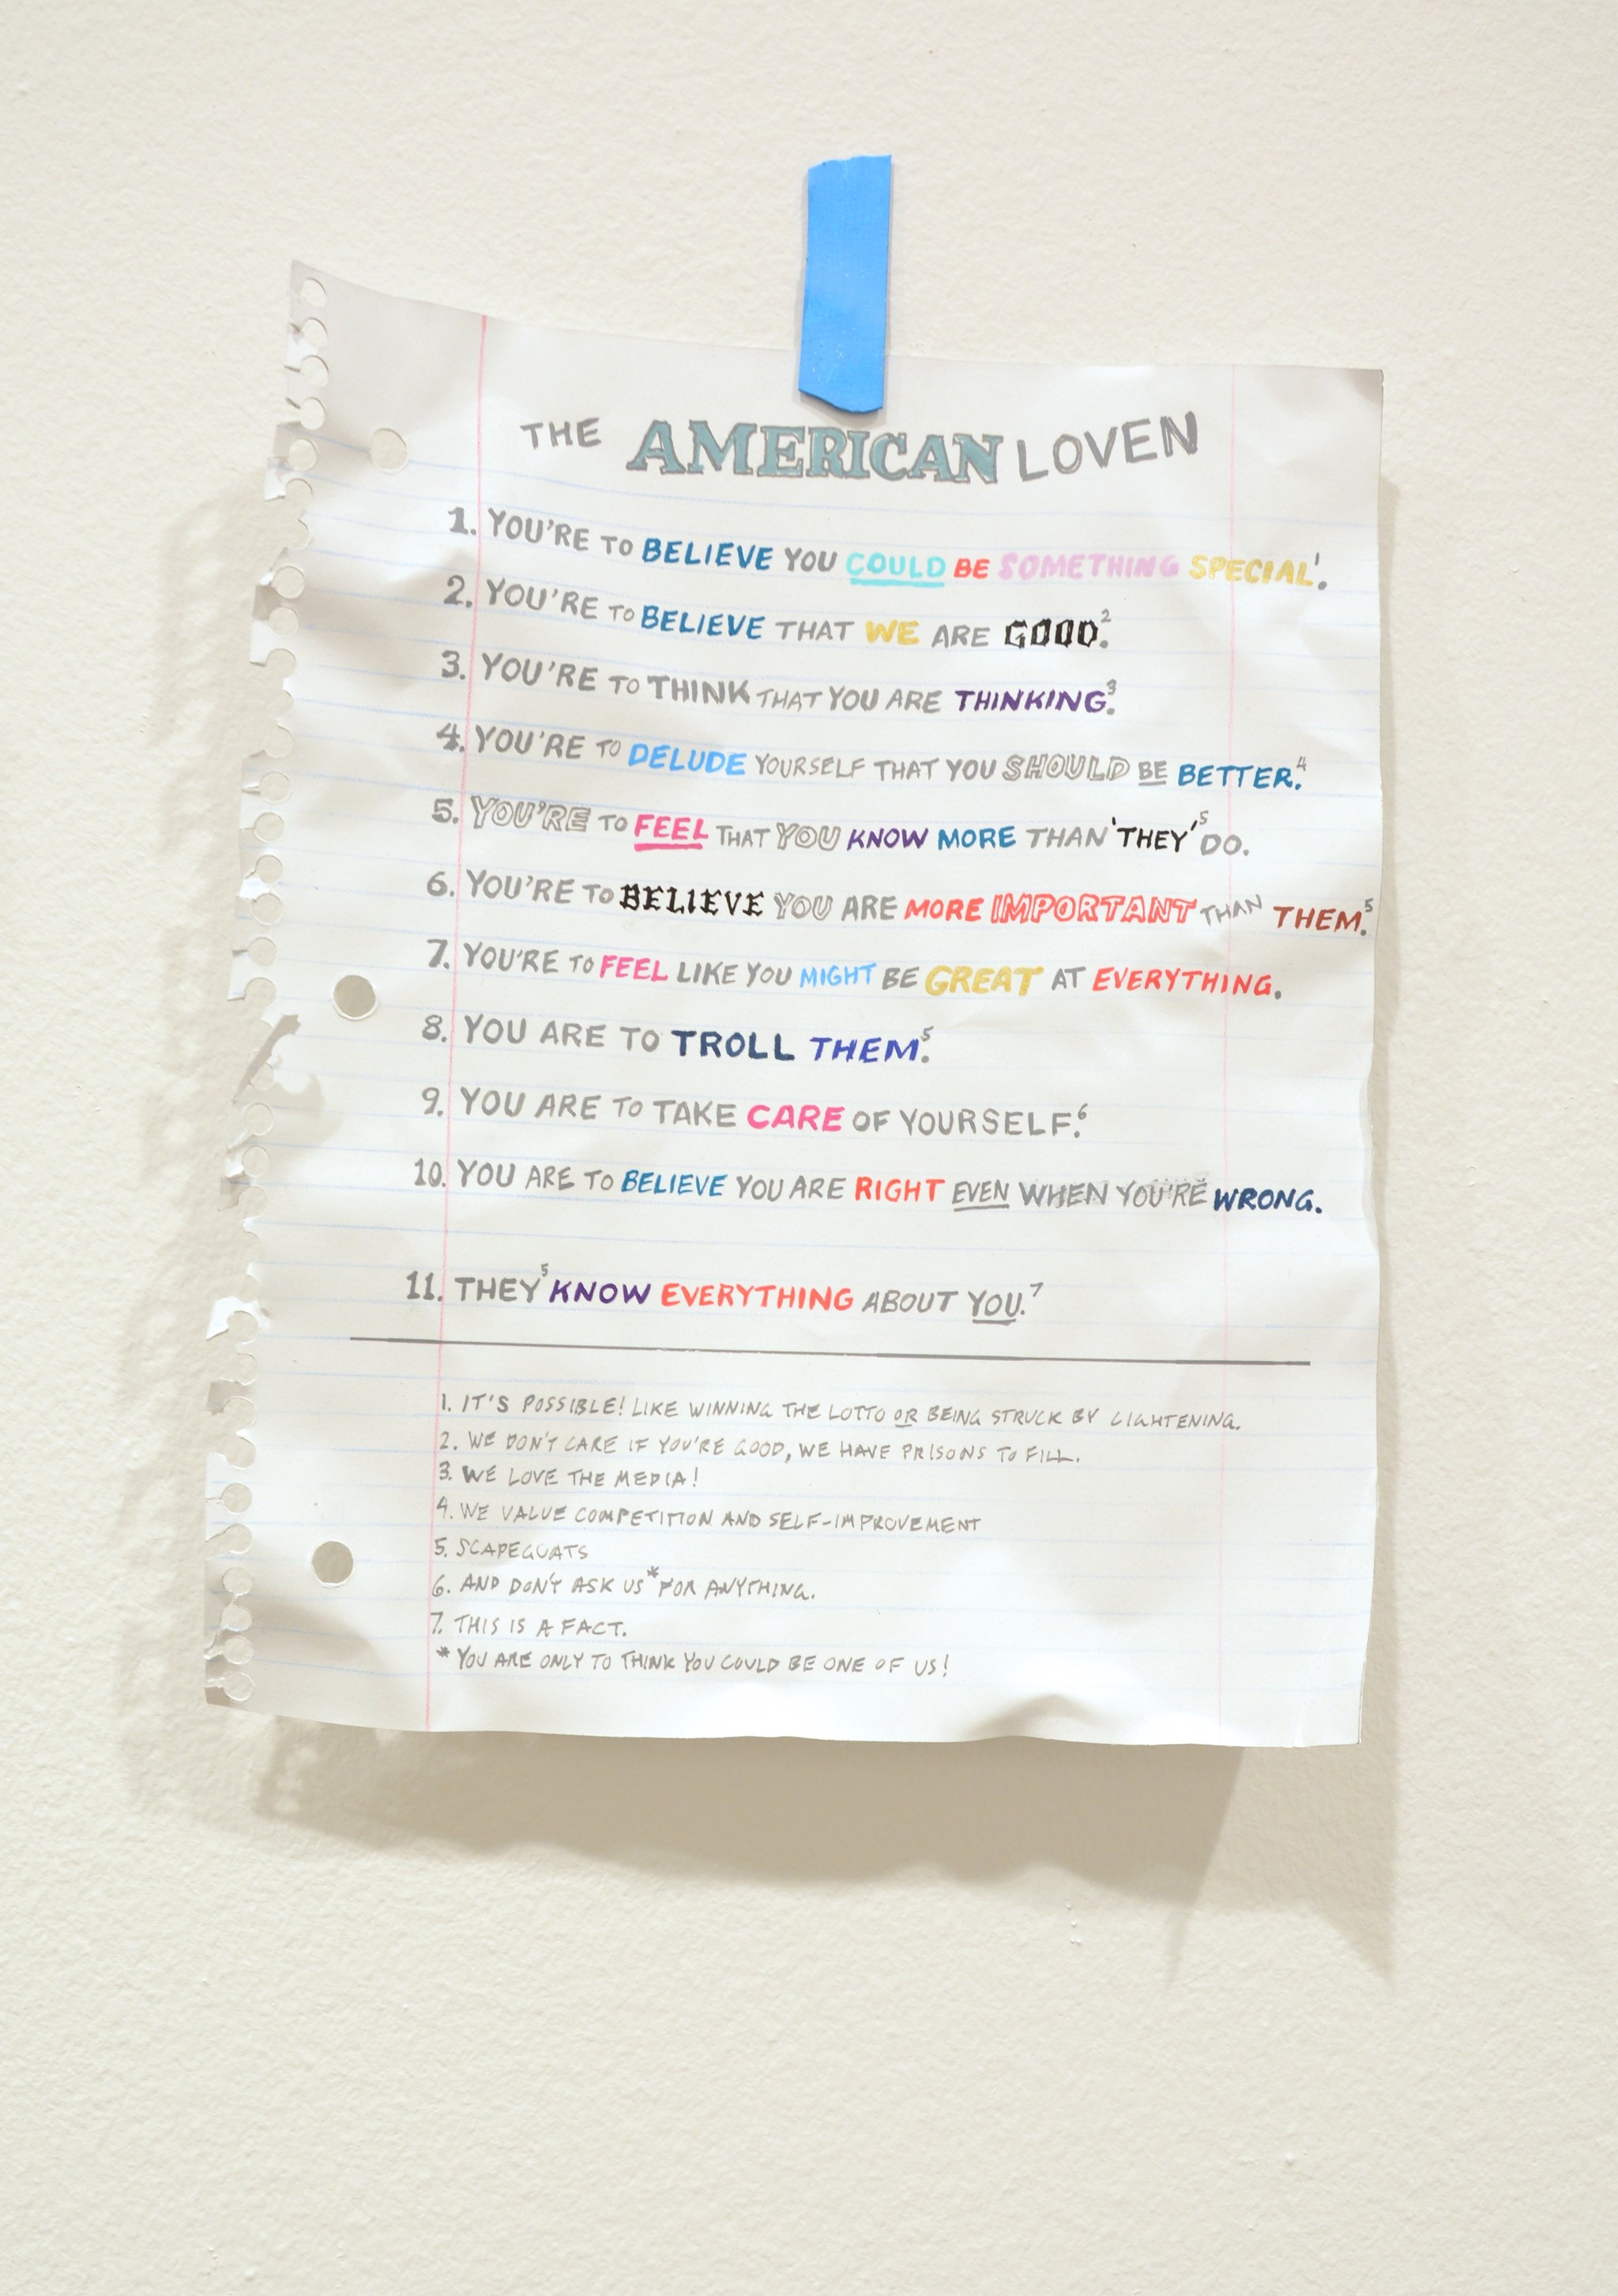 THE AMERICAN LOVEN
1. YOU'RE TO BELIEVE YOU COULD BE SOMETHING SPECIAL¹.
2. YOU'RE TO BELIEVE THAT WE ARE GOOD.²
3. YOU'RE TO THINK THAT YOU ARE THINKING.³
4. YOU'RE TO DELUDE YOURSELF THAT YOU SHOULD BE BETTER.⁴
5. YOU'RE TO FEEL THAT YOU KNOW MORE THAN 'THEY'⁵ DO.
6. YOU'RE TO BELIEVE YOU ARE MORE IMPORTANT THAN THEM.⁵
7. YOU'RE TO FEEL LIKE YOU MIGHT BE GREAT AT EVERYTHING.
8. YOU ARE TO TROLL THEM.⁵
9. YOU ARE TO TAKE CARE OF YOURSELF.⁶
10. YOU ARE TO BELIEVE YOU ARE RIGHT EVEN WHEN YOU'RE WRONG.
11. THEY⁵ KNOW EVERYTHING ABOUT YOU.⁷
1. IT'S POSSIBLE! LIKE WINNING THE LOTTO OR BEING STRUCK BY LIGHTENING.
2. WE DON'T CARE IF YOU'RE GOOD, WE HAVE PRISONS TO FILL.
3. WE LOVE THE MEDIA!
4. WE VALUE COMPETITION AND SELF-IMPROVEMENT
5. SCAPEGOATS
6. AND DON'T ASK US* FOR ANYTHING.
7. THIS IS A FACT.
* YOU ARE ONLY TO THINK YOU COULD BE ONE OF US!